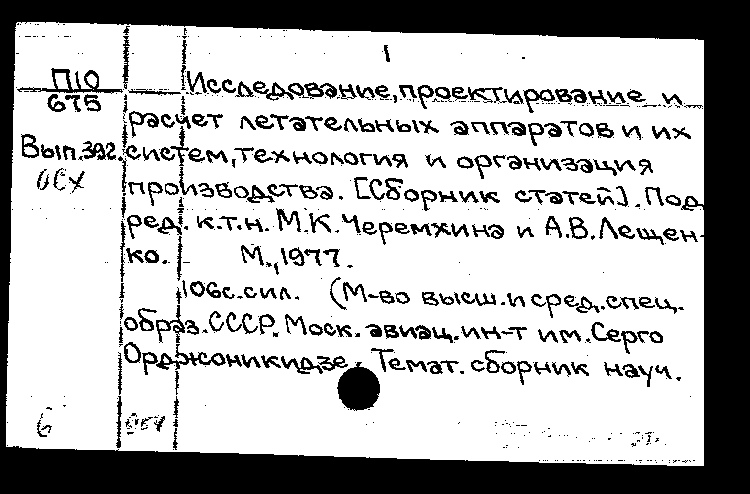 1
П10 Исследование, проектирование и
675
расчет летательных аппаратов и их
Вып.392. систем, технология и организация
ОСХ производства. [Сборник статей]. Под
ред. к.т.н. М.К.Черемхина и А.В.Лещен-
ко. М., 1977.
106с.сил. (М-во высш.и сред.спец.
образ.СССР. Моск. авиац.ин-т им.Серго
Орджоникидзе. Темат. сборник науч.
6